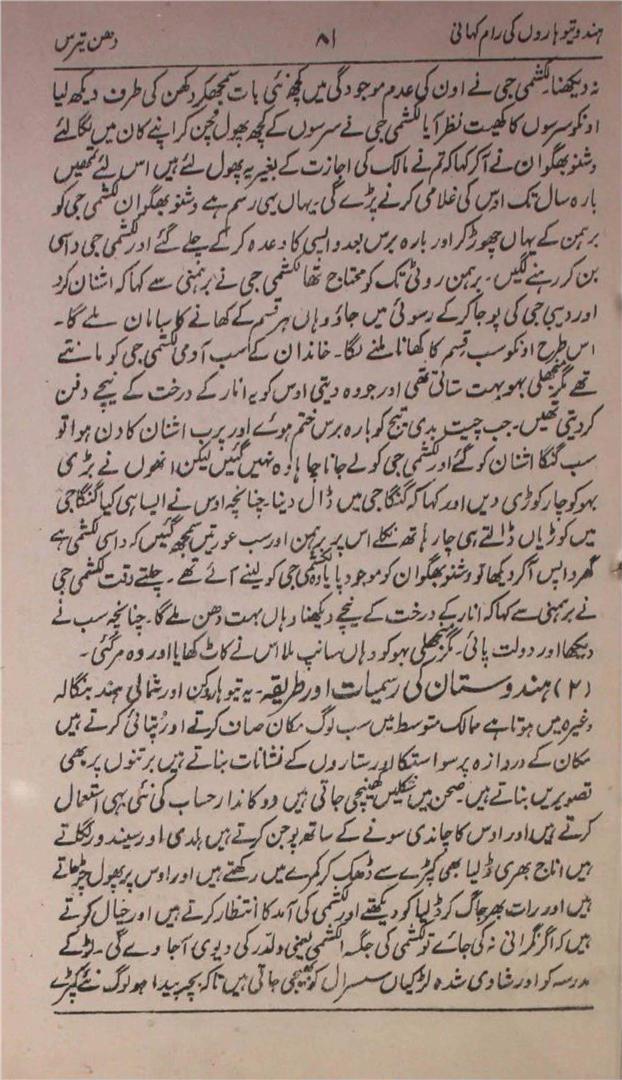 ہندو تیوہاروں کی رام کہانی ۸۱ دھن تیرس
نہ دیکھنا۔ لکشمی جی نے اون کی عدم موجودگی میں کچھ نئی بات سمجھکر دکھن کی طرف دیکھ لیا
اونکو سرسوں کا کھیت نظر آیا لکشمی جی نے سرسوں کے کچھ پھول نچن کر اپنے کان میں لگا لئے
وشنو بھگوان نے آ کر کہا کہ تم نے مالک کی اجازت کے بغیر یہ پھول لئے ہیں اس لئے تمھیں
بارہ سال تک اوس کی غلامی کرنے پڑے گی۔ یہاں یہی رسم ہے وشنو بھگوان لکشمی جی کو
برہمن کے یہاں چھوڑ کر اور بارہ برس بعد واپسی کا وعدہ کر کے چلے گئے اور لکشمی جی داسی
بن کر رہنے لگیں۔ برہمن روٹی تک کو محتاج تھا لکشمی جی نے برہمنی سے کہا کہ اشنان کرو
اور دیبی جی کی پوجا کر کے رسوئی میں جاؤ وہاں ہر قسم کے کھانے کا سامان ملے گا۔
اس طرح اونکو سب قسم کا کھانا ملنے لگا۔ خاندان کے سب آدمی لکشمی جی کو مانتے
تھے مگر منجھلی بہو بہت ستاتی تھی اور جو وہ دیتی اوس کو یہ انار کے درخت کے نیچے دفن
کر دیتی تھیں۔ جب چیت بدی تیج کو بارہ برس ختم ہوئے اور پرب اشنان کا دن ہوا تو
سب گنگا اشنان کو گئے اور لکشمی جی کو لے جانا چاہا وہ نہیں گئیں لیکن انھوں نے بڑی
بہو کو چار کوڑی دیں اور کہا کہ گنگا جی میں ڈال دینا۔ چنانچہ اوس نے ایسا ہی کیا گنگا جی
میں کوڑیاں ڈالتے ہی چار ہاتھ نکلے اس پر برہمن اور سب عورتیں سمجھ گئیں کہ داسی لکشمی ہے
گھر واپس آ کر دیکھا تو وشنو بھگوان کو موجود پایا وہ لکشمی جی کو لینے آئے تھے۔ چلتے وقت لکشمی جی
نے برہمنی سے کہا کہ انار کے درخت کے نیچے دیکھنا وہاں بہت دھن ملے گا۔ چنانچہ سب نے
دیکھا اور دولت پائی۔ مگر منجھلی بہو کو وہاں سانپ ملا اس نے کاٹ کھایا اور وہ مر گئی۔
(۲) ہندوستان کی رسمیات اور طریقہ۔ یہ تیوہار دکن اور شمالی ہند بنگالہ
وغیرہ میں ہوتا ہے ممالک متوسط میں سب لوگ مکان صاف کرتے اور پتائی کرتے ہیں
مکان کے دروازہ پر سواستکا اور ستاروں کے نشانات بناتے ہیں برتنوں پر بھی
تصویریں بناتے ہیں۔ صحن میں شکلیں کھینچی جاتی ہیں دوکاندار حساب کی نئی بہی استعمال
کرتے ہیں اور اوس کا چاندی سونے کے ساتھ پوجن کرتے ہیں ہلدی اور سیندور لگاتے
ہیں اناج بھری ڈلیا بھی کپڑے سے ڈھک کر کمرے میں رکھتے ہیں اور اوس پر پھول چڑھاتے
ہیں اور رات بھر جاگ کر ڈلیا کو دیکھتے اور لکشمی کی آمد کا انتظار کرتے ہیں اور خیال کرتے
ہیں کہ اگر نگرانی نہ کی جائے تو لکشمی کی جگہ الکشمی یعنی دلدر کی دیوی آ جاوے گی۔ لڑکے
مدرسہ کو اور شادی شدہ لڑکیاں سسرال کو بھیجی جاتی ہیں تاکہ بچہ پیدا ہو لوگ نئے کپڑے